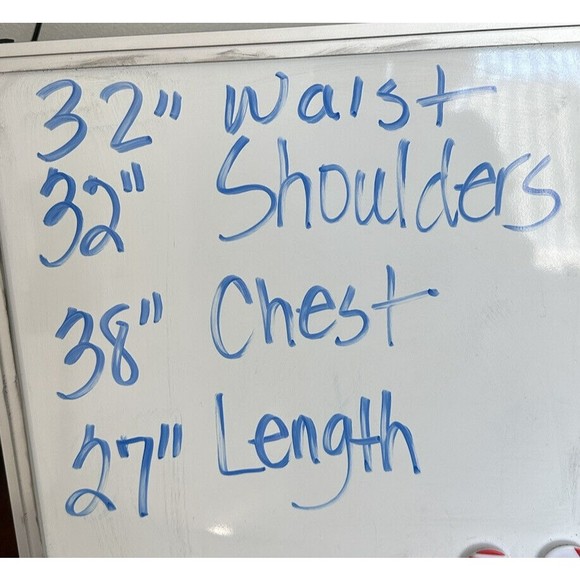 32" Waist
32" Shoulders
38" Chest
27" Length